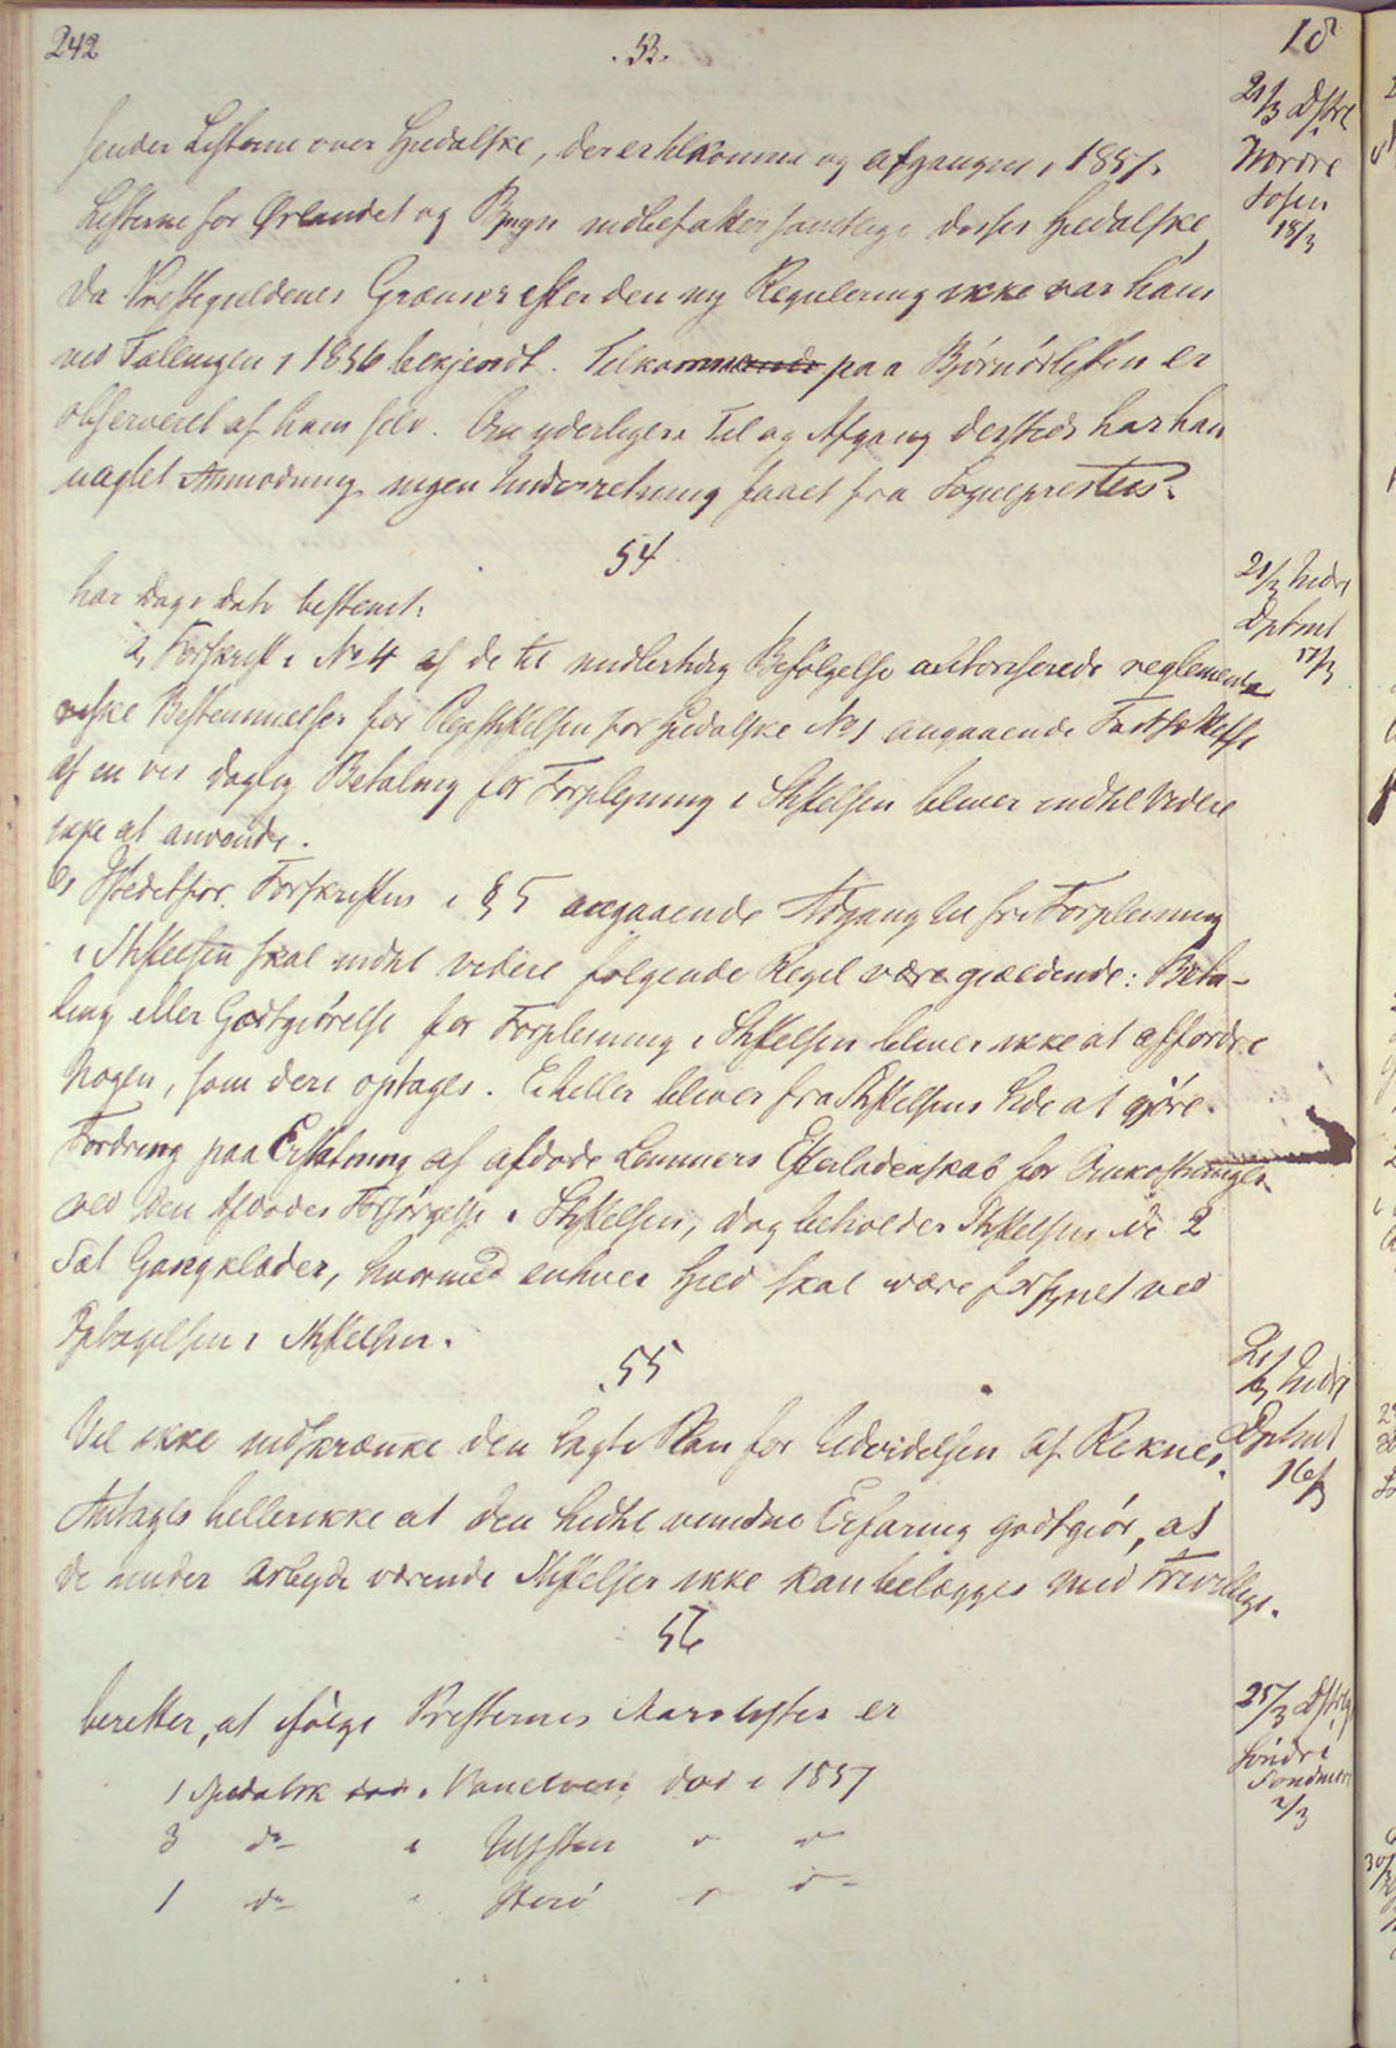 242
.53.
18
sender Listerne over Spedalske, der er tilkomne og afgangne i 1857.
Listerne for Ørlandet og Bjugn indbefatter samtlige disses Spedalske,
da Præstegjeldenes Grænser efter den ny Regulering ikke var ham
ved Tællingen i 1856 bekjendt. Tilkommende paa Bjørnørlisten er
observeret af ham selv. Om yderligere Til og Afgang dersteds har han
uagtet Anmodning ingen Underretning faaet fra Sognepresten.
21/3 Dstr
Nordre
Fosen
18/3
54
har Dags Dato bestemt:
a, Forskrift i No 4 af de til midlertidig Befølgelse autoriserede reglementa
riske Bestemmelser for Plejestiftelsen for Spedalske No 1 angaaende Fastsættelse
af en vis daglig Betaling for Forplejning i Stiftelsen bliver indtil Videre
ikke at anvende.
b, Istedetfor Forskriften i § 5 angaaende Adgang til fri Forpleining
i Stiftelsen skal indtil videre følgende Regel være gjældende: Beta-
ling eller Godtgjørelse for Forpleining i Stiftelsen bliver ikke at affordre
Nogen, som deri optages. Ei heller bliver fra Stiftelsens Side at gjøre
Fordring paa Erstatning af afdøde Lemmers Efterladenskab for Omkostninger
ved den Afdødes Forsørgelse i Stiftelsen, dog beholder Stiftelsen de 2
Sæt Gangklæder, hvormed enhver Spedalsk skal være forsynet ved
Optagelsen i Stiftelsen.
21/3 Indre
Dptmt
17/3
55
Vil ikke indskrænke den lagte Plan for Udvidelsen af Reknes.
Antages heller ikke at den hidtil vundne Erfaring godtgjør, at
de under Arbejde værende Stiftelser ikke kan belægges med Frivillige.
21/3 Indre
Dptmt
16/3
56
beretter, at ifølge Presternes Aarslister er
1 Spedalsk død i Vanelven død i 1857
3 do i Ulfsten " "
1 do " Herø " "
25/3 Dstrlg
Søndre
Søndmør
2/3